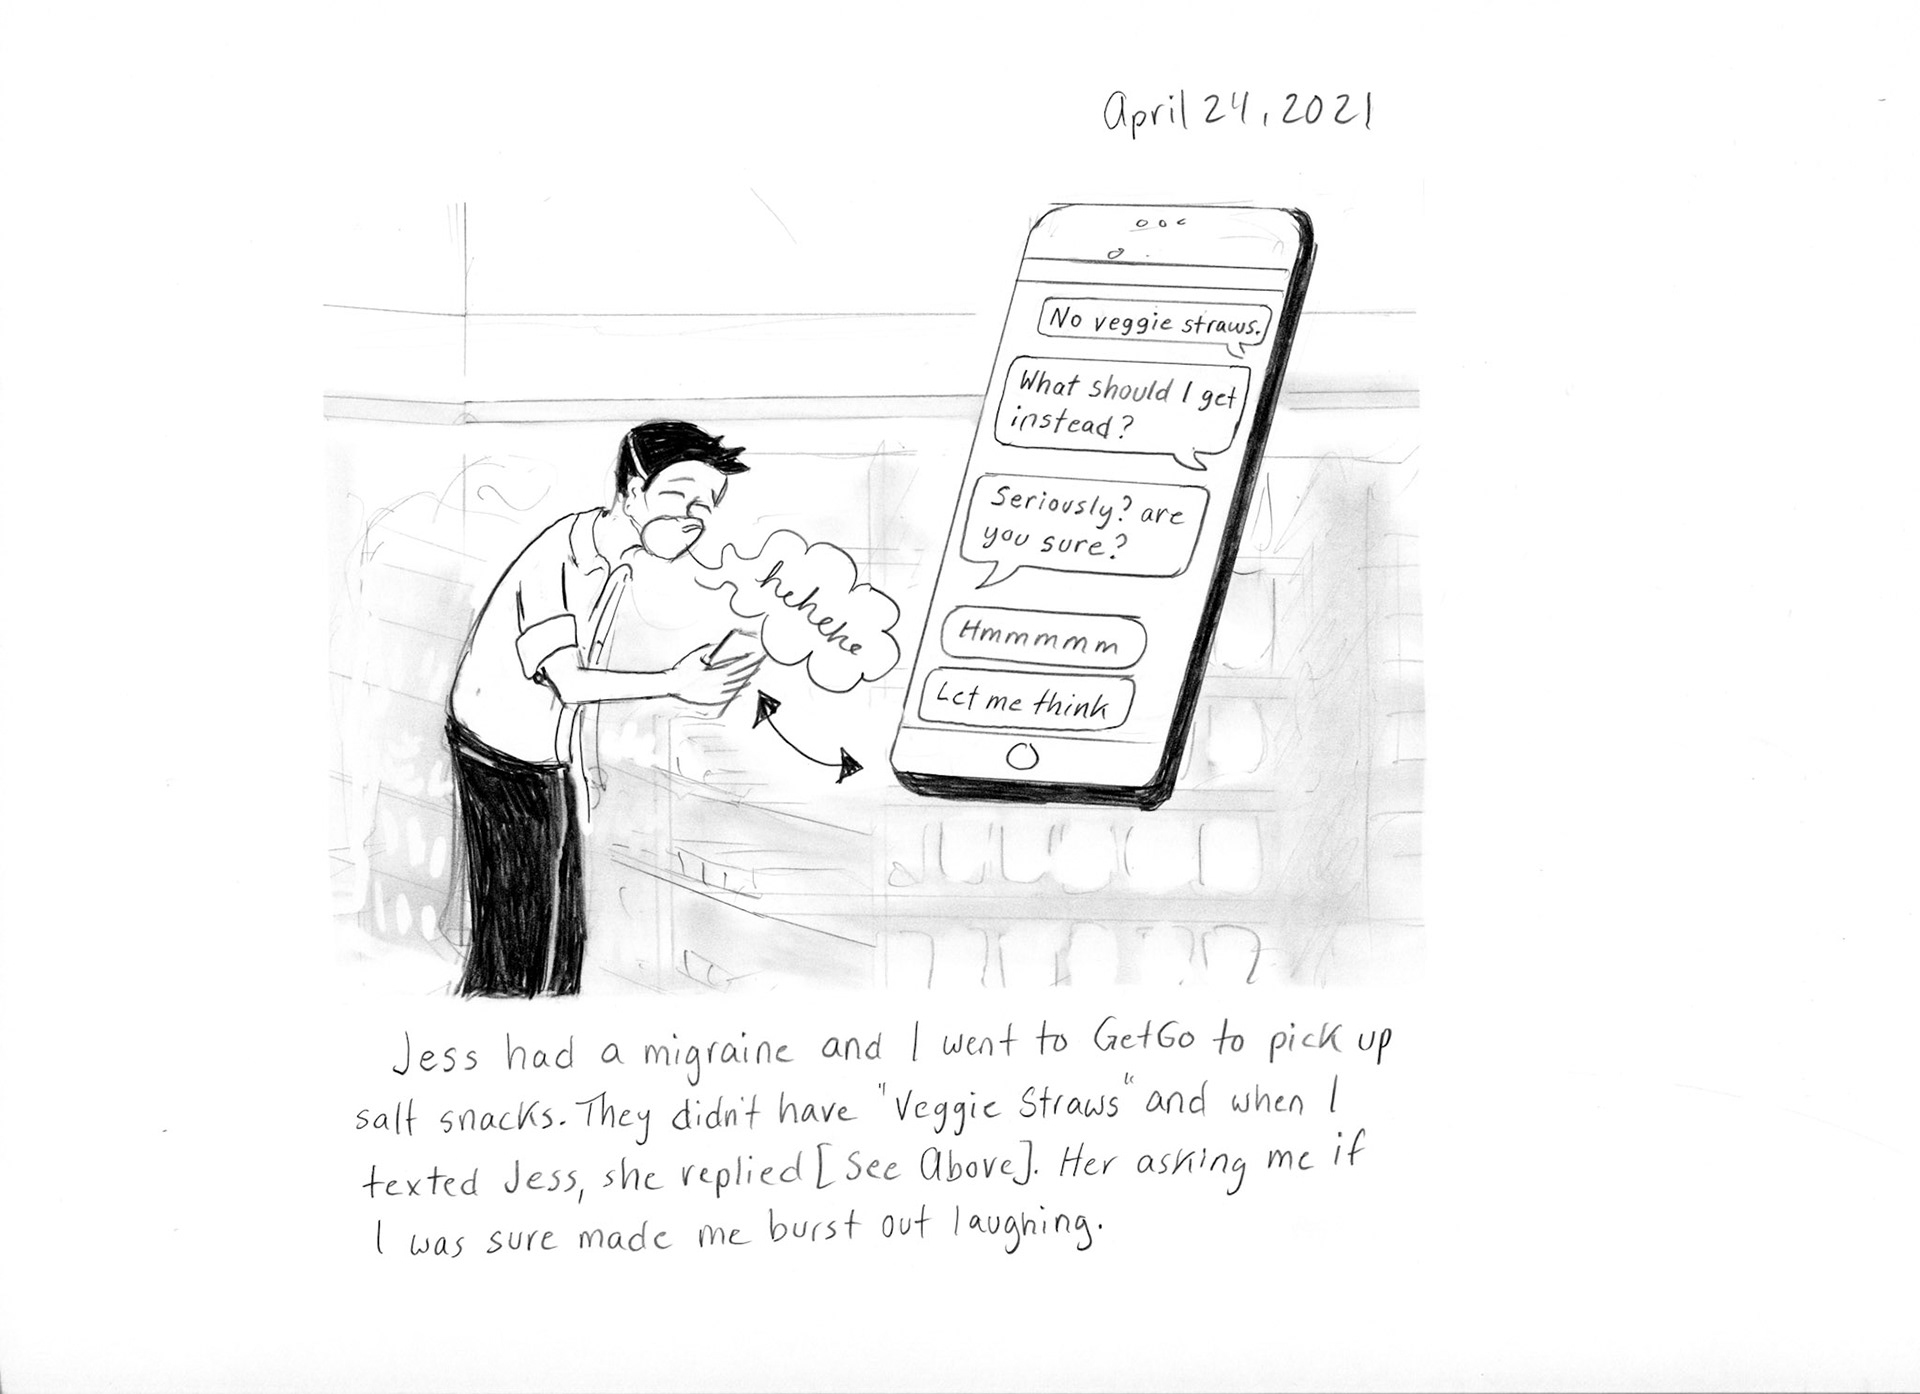 April 24, 2021
No veggie straws.
What should I get
instead?
Seriously? are
you sure?
Hmmmmm
Let me think
hehehehe
Jess had a migraine and I went to GetGo to pick up
salt snacks. They didn't have "Veggie Straws" and when I
texted Jess, she replied [See Above]. Her asking me if
I was sure made me burst out laughing.